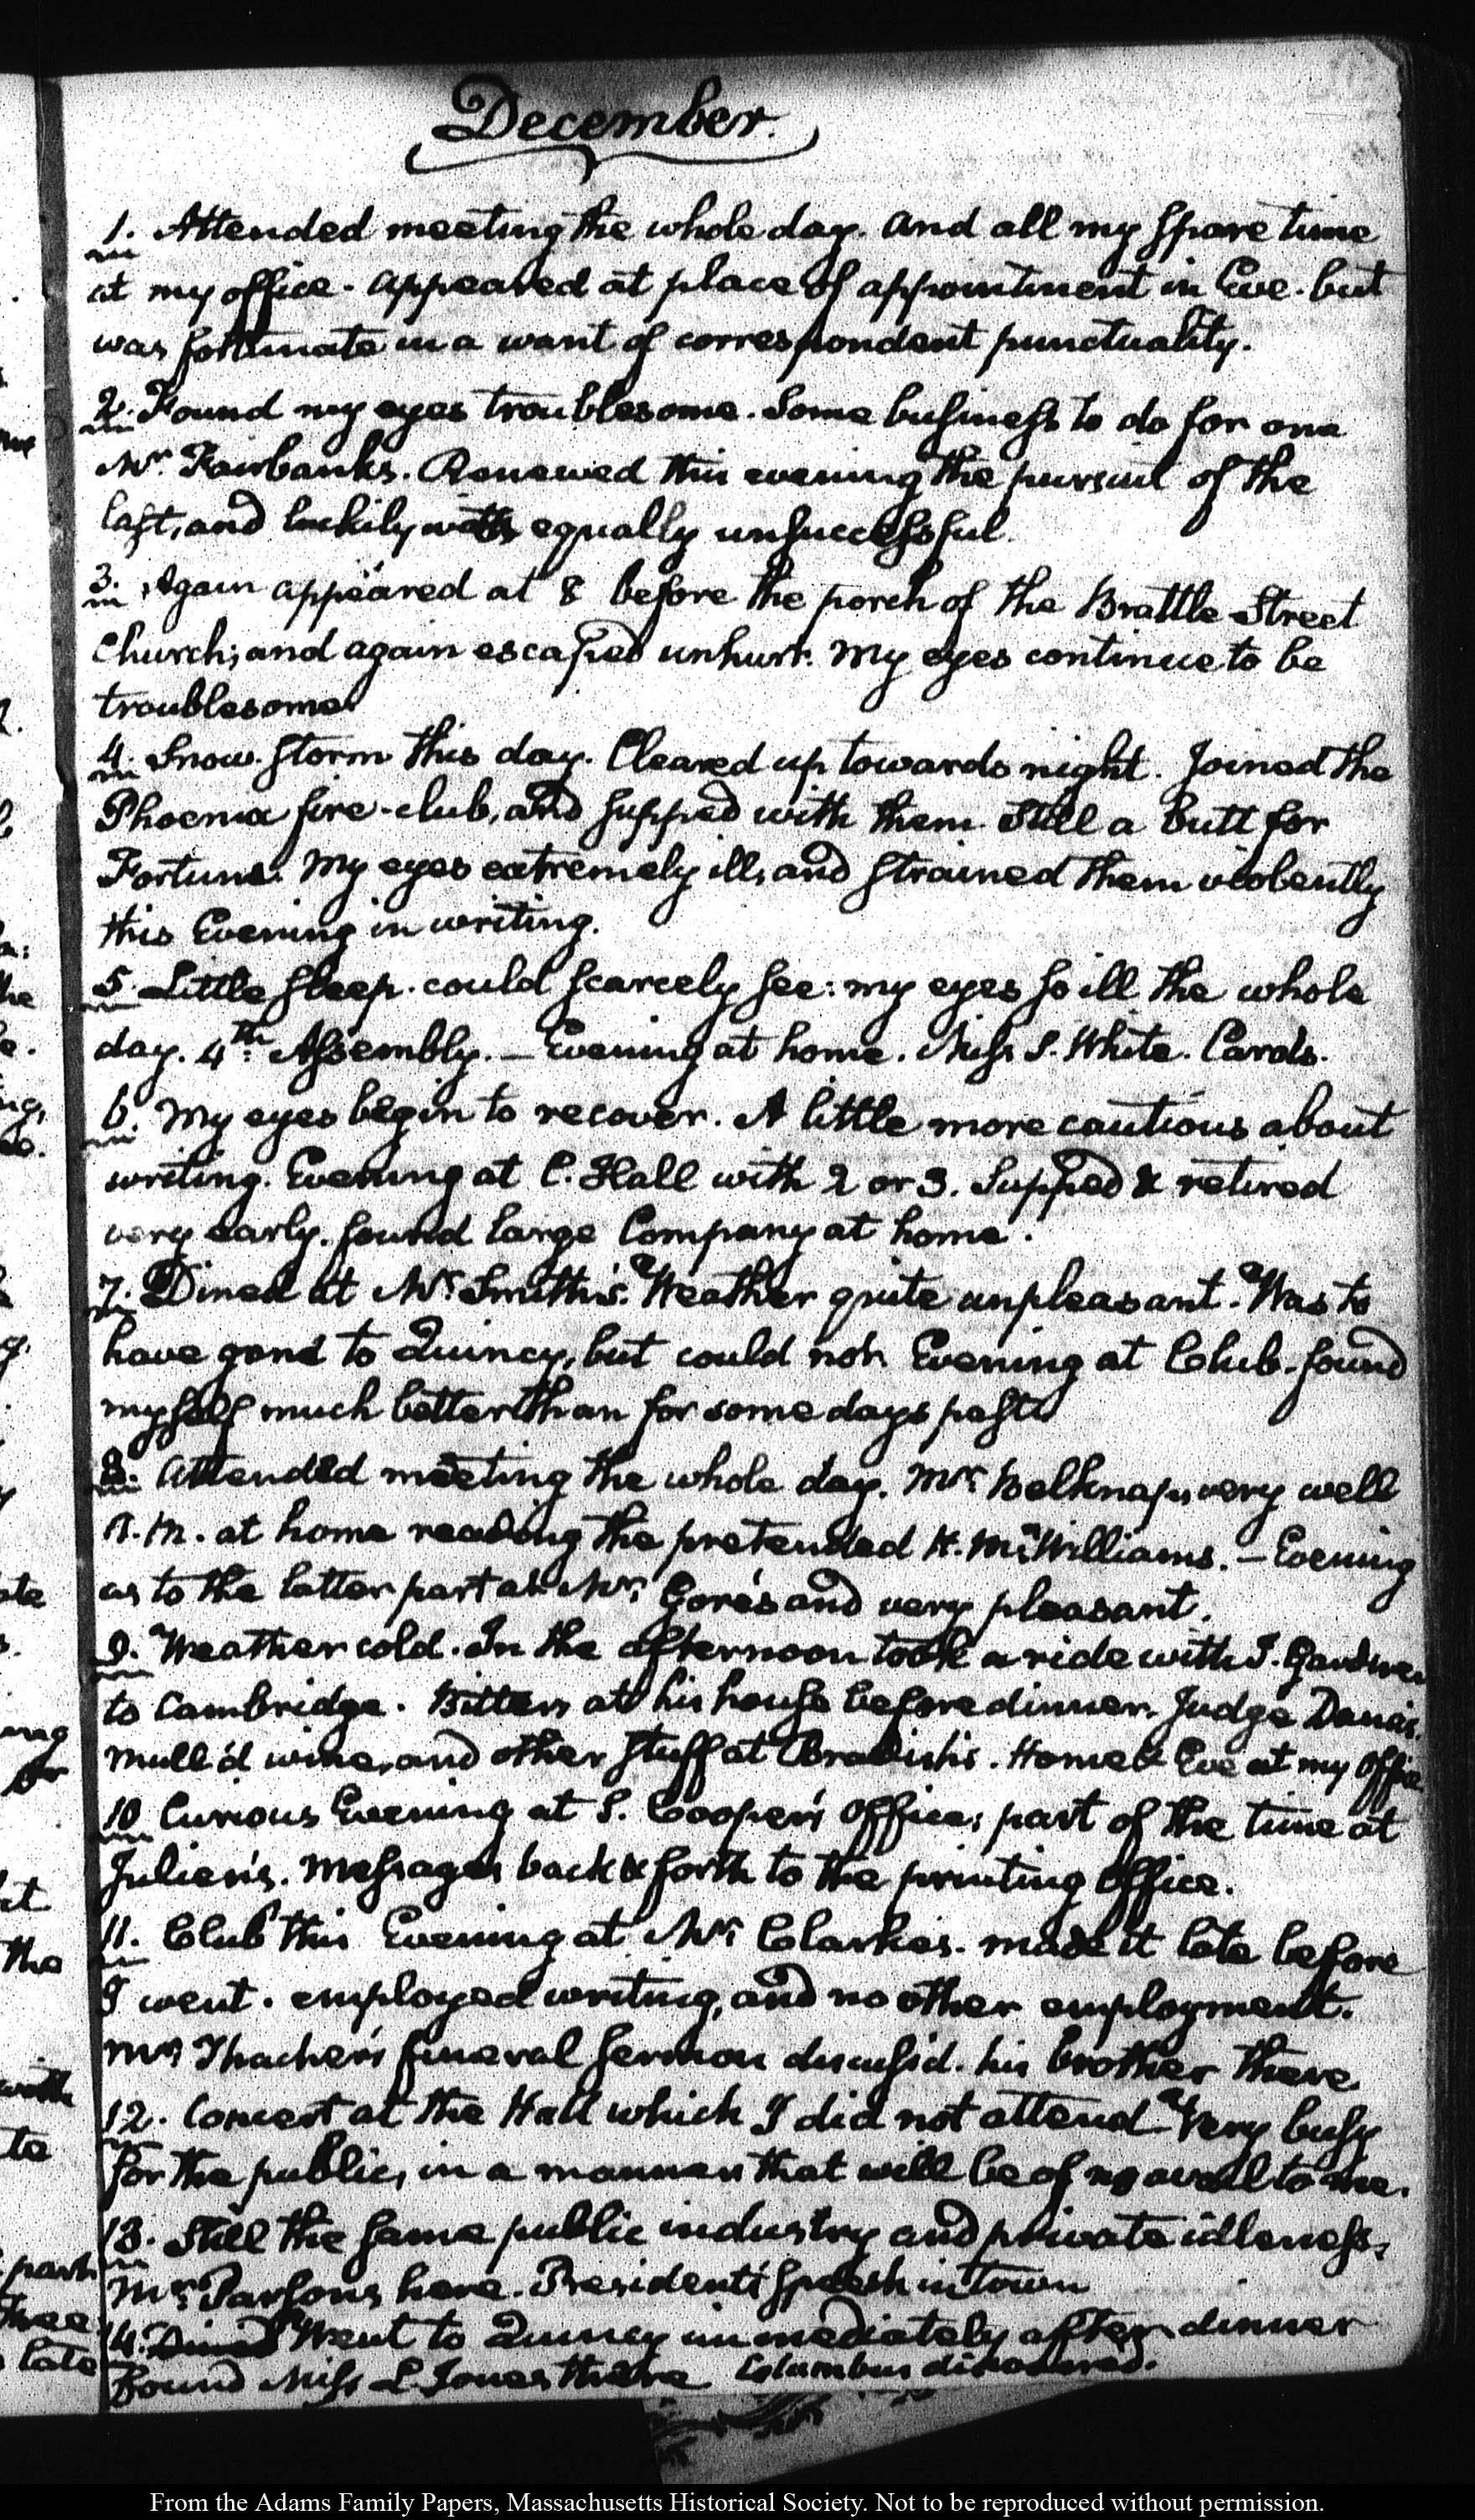 December.
1. Attended meeting the whole day. And all my spare time
at my office. appeared at place of appointment in Eve. but
was fortunate in a want of correspondent punctuality.
2. Found my eyes troublesome. Some business to do for one
Mr. Fairbanks. Renewed this evening the pursuit of the
last, and luckily was equally unsuccessful.
3. Again appeared at 8 before the porch of the Brattle Street
Church; and again escaped unhurt. My eyes continue to be
troublesome
4. Snow storm this day. Cleared up towards night. Joined the
Phoenix fire-club, and supped with them. Still a Butt for
Fortune. My eyes extremely ill, and strained them violently
this Evening in writing.
5. Little sleep. could scarcely see: my eyes so ill the whole
day. 4th. Assembly. — Evening at home. Miss S. White. Cards.
6. My eyes begin to recover. A little more cautious about
writing. Evening at C. Hall with 2 or 3. Supped & retired
very early. found large Company at home.
7. Dined at Mr. Smith's. Weather quite unpleasant. Was to
have gone to Quincy, but could not. Evening at Club. found
myself much better than for some days past
8. Attended meeting the whole day. Mr. Belknap very well
A.M. at home reading the pretended H. M. Williams. — Evening
as to the latter part at Mr. Gore's and very pleasant.
9. Weather cold. In the afternoon took a ride with J. Gardner
to Cambridge. Bitters at his house before dinner. Judge Dana's.
mull'd wine, and other stuff at Bradish's. Home & Eve at my office
10 Curious Evening at S. Cooper's office; part of the time at
Julien's. Messages back & forth to the printing office.
11. Club this Evening at Mr. Clarke's. made it late before
I went. employed writing, and no other employment.
Mr. Thacher's funeral sermon discuss'd. his brother there.
12. Concert at the Hall which I did not attend. Very busy
for the public, in a manner that will be of no avail to me.
13. Still the same public industry and private idleness.
Mr. Parsons here. President's speech in town
14. Dined Went to Quincy immediately after dinner
Found Miss L. Jones there Columbus discovered.
From the Adams Family Papers, Massachusetts Historical Society. Not to be reproduced without permission.